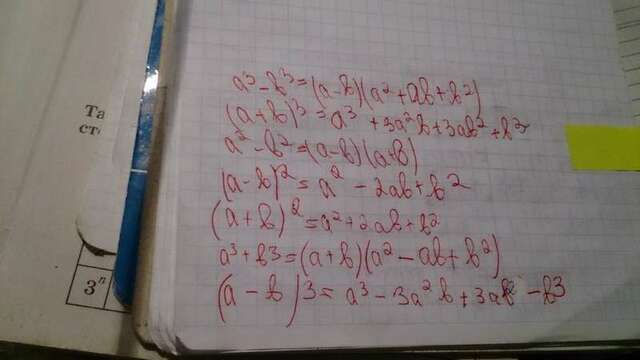 a³-b³=(a-b)(a²+ab+b²)
(a+b)³=a³+3a²b+3ab²+b³
a²-b²=(a-b)(a+b)
(a-b)²=a²-2ab+b²
(a+b)²=a²+2ab+b²
a³+b3=(a+b)(a²-ab+b²)
(a-b)3=a³-3a²b+3ab²-b3
Та
ст
3ⁿ